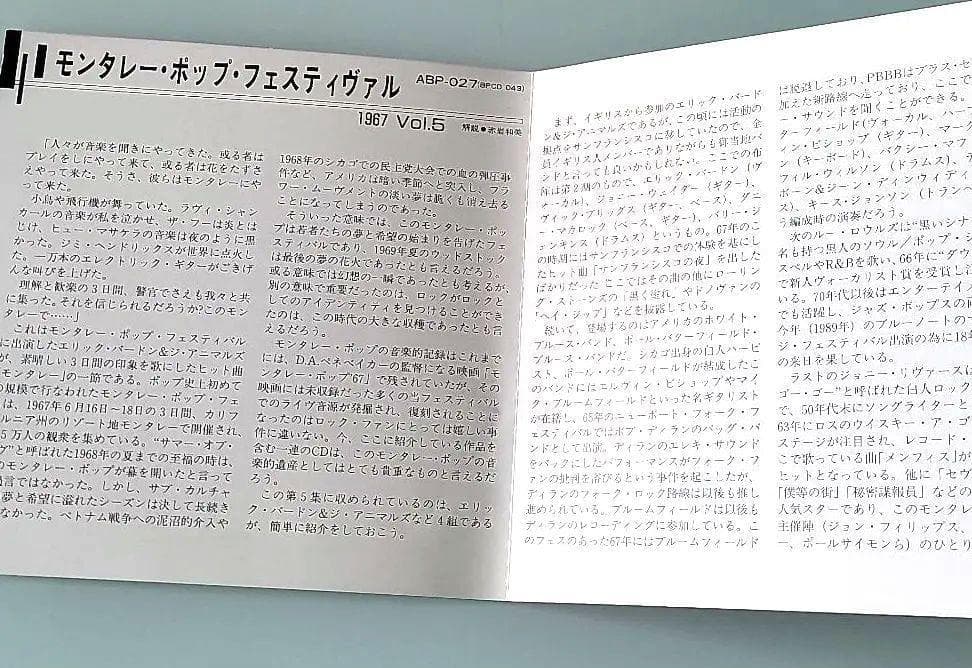 モンタレー・ポップ・フェスティヴァル
ABP-027(BPCD 043)
1967 Vol.5 解説●赤岩和美
「人々が音楽を聞きにやってきた。或る者は
プレイをしにやって来て、或る者は花をたずさ
えやって来た。そうさ、彼らはモンタレーにや
って来た。
小鳥や飛行機が舞っていた。ラヴィ・シャン
カールの音楽が私を泣かせ、ザ・フーは炎とは
じけ、ヒュー・マサケラの音楽は夜のように黒
かった。ジミ・ヘンドリックスが世界に点火し
た。一万本のエレクトリック・ギターがごきげ
んな叫びを上げた。
理解と歓楽の3日間、警官でさえも我々と共
に集った。それを信じられるだろうか?このモン
タレーで……」
これはモンタレー・ポップ・フェスティバル
に出演したエリック・バードン&ジ・アニマルズ
が、素晴しい3日間の印象を歌にしたヒット曲
モンタレー」の一節である。ポップ史上初めて
の規模で行なわれたモンタレー・ポップ・フェ
は、1967年6月16日〜18日の3日間、カリフ
ルニア州のリゾート地モンタレーで開催され、
5万人の観衆を集めている。“サマー・オブ・
ヴ”と呼ばれた1968年の夏までの至福の時は、
のモンタレー・ポップが幕を開いたと言って
過言ではない。しかし、サブ・カルチャ
夢と希望に溢れたシーズンは決して長続き
なかった。ベトナム戦争への泥沼的介入や
1968年のシカゴでの民主党大会での血の弾圧事
件など、アメリカは暗い季節へと突入し、フラ
ワー・ムーヴメントの淡い夢は脆くも消え去る
ことになってしまうのであった。
そういった意味では、このモンタレー・ポッ
プは若者たちの夢と希望の始まりを告げたフェ
スティバルであり、1969年夏のウッドストック
は最後の夢の花火であったとも言えるだろう。
或る意味では幻想の一瞬であったとも考えるが、
別の意味で重要だったのは、ロックがロックと
してのアイデンティティを見つけることができ
たのは、この時代の大きな収穫であったとも言
えるだろう。
モンタレー・ポップの音楽的記録はこれまで
には、D.A.ペネベイカーの監督になる映画「モ
ンタレー・ポップ'67」で残されていたが、その
映画には未収録だった多くの当フェスティバル
でのライヴ音源が発掘され、復刻されることに
なったのはロック・ファンにとっては嬉しい事
件に違いない。今、ここに紹介している作品を
含む一連のCDは、このモンタレー・ポップの音
楽的遺産としてはとても貴重なものと言えるだ
ろう。
この第5集に収められているのは、エリッ
ク・バードン&ジ・アニマルズなど4組である
が、簡単に紹介をしておこう。
まず、イギリスから参加のエリック・バード
ン&ジ・アニマルズであるが、この頃には活動の
拠点をサンフランシスコに移していたので、全
員イギリス人メンバーでありながらも弥当地バ
ンドと言っても良いかもしれない。ここでの布
陣は第2期のもので、エリック・バードン(ヴ
ォーカル)、ジョニー・ウェイダー(ギター)、
ヴィック・ブリッグス(ギター、ベース)、ダニ
ー・マカロック(ベース、ギター)、バリー・ジ
ェンキンス(ドラムス)というもの。67年のこ
の時期にはサンフランシスコでの体験を基にし
たヒット曲「サンフランシスコの夜」を出した
ばかりだった ここではその曲の他にローリン
グ・ストーンズの「黒く塗れ」やドノヴァンの
「ヘイ・ジップ」などを披露している。
続いて、登場するのはアメリカのホワイト・
ブルース・バンド、ポール・バターフィールド・
ブルース・バンドだ。シカゴ出身の白人ハーピ
スト、ポール・バターフィールドが結成したこ
のバンドにはエルヴィン・ビショップやマイ
ク・ブルームフィールドといった名ギタリスト
が在籍し、65年のニューポート・フォーク・フ
ェスティバルではボブ・ディランのバッグ・バ
ンドとして出演。ディランのエレキ・サウンド
をバックにしたパフォーマンスがフォーク・フ
ァンの批判を浴びるという事件を起こしたが、
ディランのフォーク・ロック路線は以後も推し
進められている。ブルームフィールドは以後も
ディランのレコーディングに参加している。こ
のフェスのあった67年にはブルームフィールド
は脱退しており、PBBBはブラス・セ
加えた新路線へ送っており、ここで
・サウンドを聞くことができる。
ターフィールド(ヴォーカル、ハー
ィン・ビショップ(ギター)、マーク
ン(キーボード)、バクシー・マフ
フィル・ウィルソン(ドラムス)、デ
ボーン&ジーン・ディンウィディ
ス)、キース・ジョンソン(トランペ
う編成時の演奏だろう。
次のルー・ロウルズは“黒いシナ
名も持つ黒人のソウル/ポップ・シ
スペルやR&Bを歌い、66年に“ダウ
で新人ヴォーカリスト賞を受賞し
いる。70年代以後はエンターテイ
でも活躍し、ジャズ・ポップスの
今年(1989年)のブルーノートの
ジ・フェスティバル出演の為に18年
の来日を果している。
ラストのジョニー・リヴァースは
ゴー・ゴー”と呼ばれた白人ロック
で、50年代末にソングライターと
63年にロスのウイスキー・ア・ゴー
ステージが注目され、レコード・
こで歌っている曲「メンフィス」が
ヒットとなっている。他に「セヴ
「僕等の街」「秘密諜報員」などの
人気スターであり、このモンタレ
主催陣(ジョン・フィリップス、
ー、ポールサイモンら)のひとり